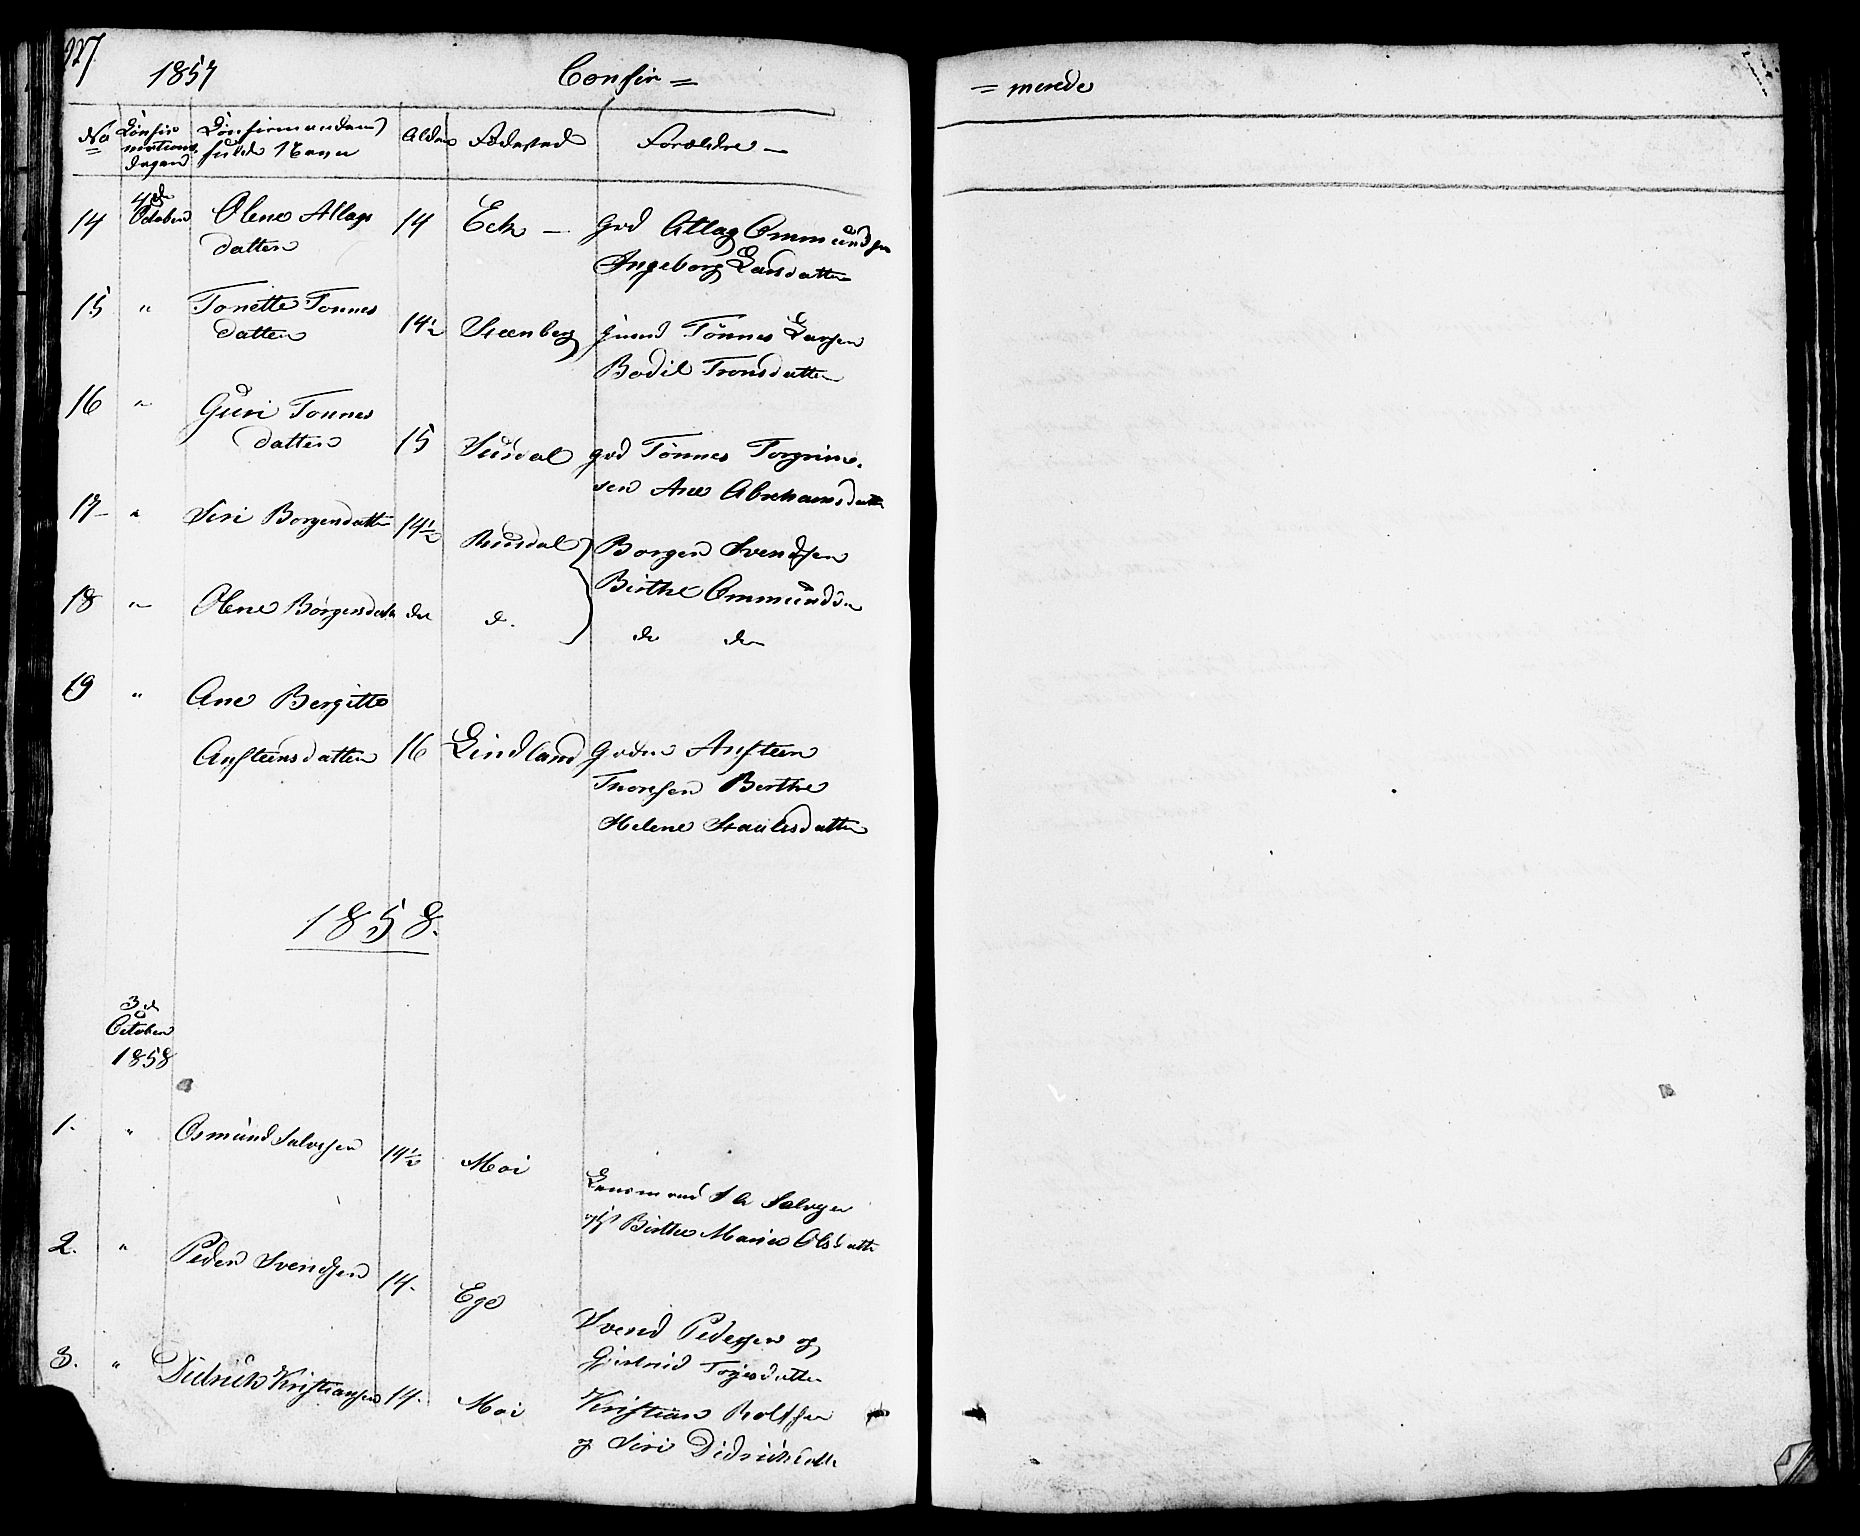 1857 Confir =
= merede
No Confirmations dagen Confirmandens fulde Navn Alder Fødested Forældre —
14 4de October Olene Atlags datter 14 Eek — Grd Atlag Ommundsen
Ingeborg Larsdatter
15 " Tonette Tonnes datter 14½ Steenberg Tönnes Larsen
Bodil Tronsdatter
16 " Guri Tonnes datter 15 grd Tönnes Torgrim
sen Ane Abrehamsdatter
17 " Siri Borgensdatter 14½ Borgen Svendsen
Birthe Ommundsd
18 " Olene Börgensdatter do d. do do
19 " Ane Bergitte
Ansteensdatter 16 Lindland Ansteen
Thorsen Berthe
Helene
1858.
3de
October
1858
1. " Osmund Salvesen 14½ Moi Lensmand Salvesen
Birthe Marie Olsdatter
2. " Peder Svendsen 14. Ege
Svend Pedersen og
Gjertrud
3. " Didrich Kristiansen 14. Moi Kristian Rolfsen
og Siri Didrichsdatter